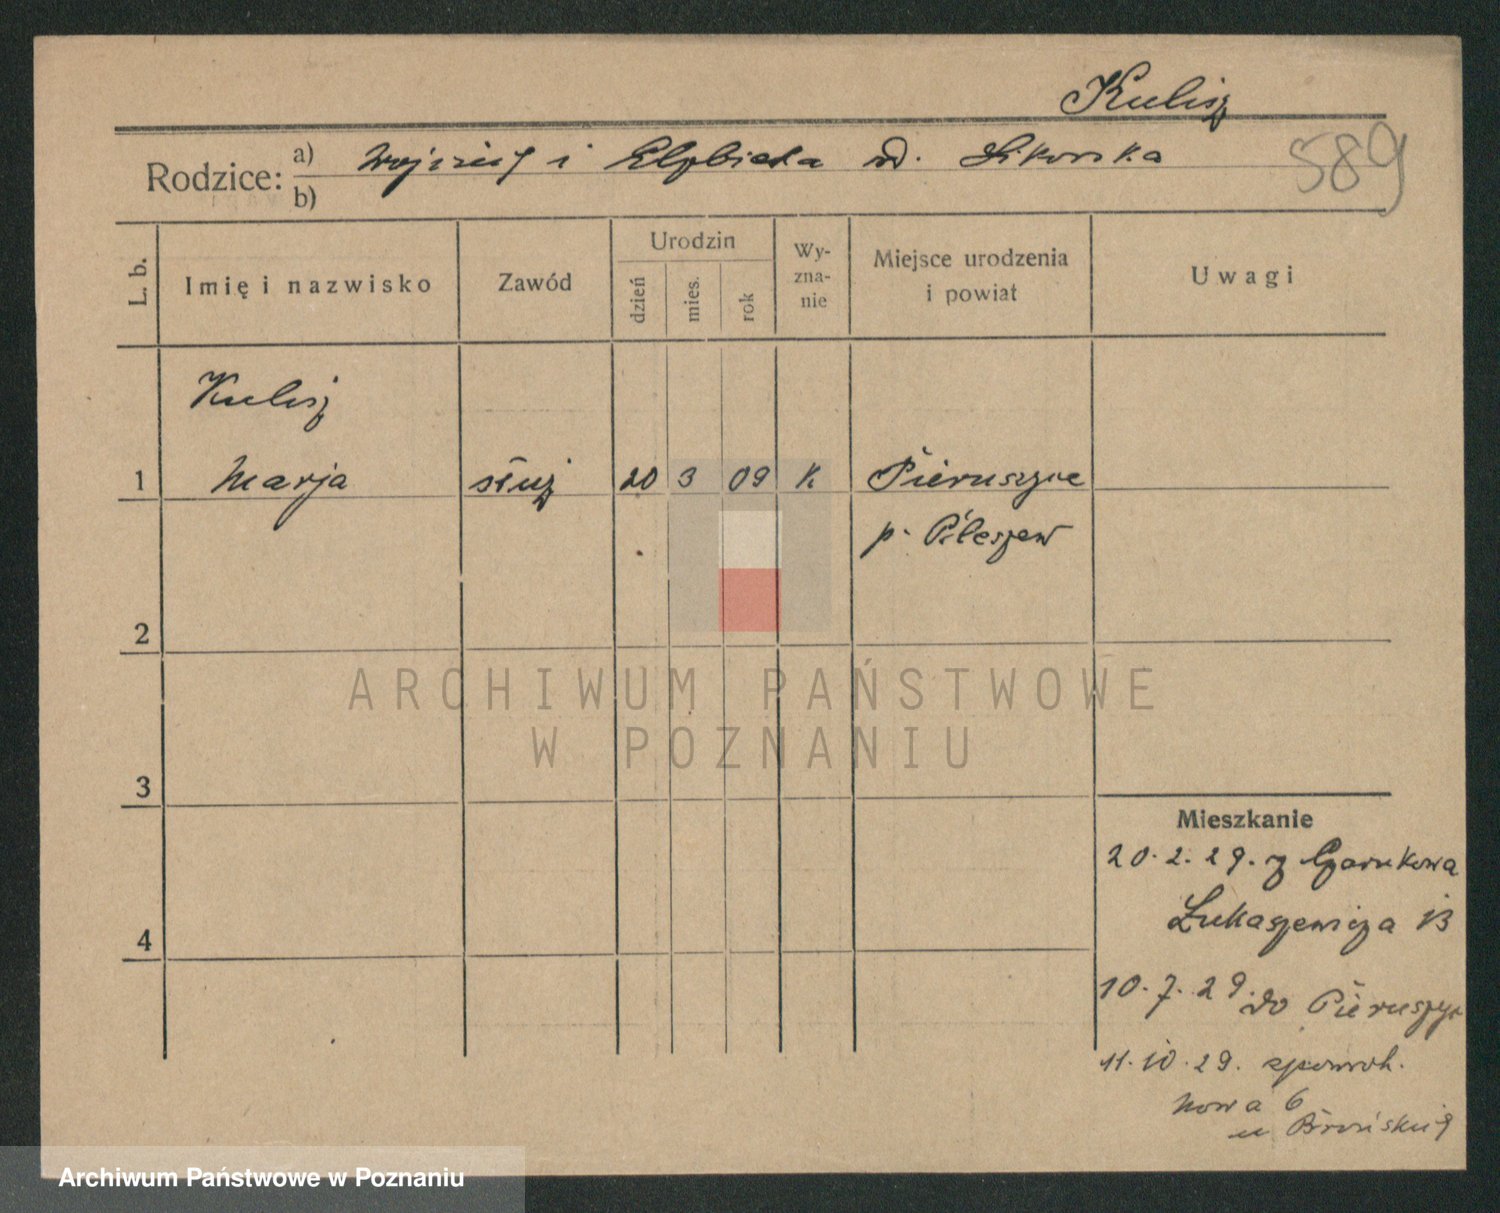 Kulisz
Rodzice: a) Wojciech i Elżbieta zd. Sikorska
b)
589
L. b.
Imię i nazwisko
Zawód
Urodzin
dzień
mies.
rok
Wy-
zna-
nie
Miejsce urodzenia
i powiat
Uwagi
Kulisz
1 Marja służ 20 3 09 k Pieruszyce
p. Pleszew
2
3
4
Mieszkanie
20.2.29. z Czarnkowa
Łukaszewicza 13
10.7.29. do Pieruszyc
11.10.29.
Nowa 6
u
ARCHIWUM PAŃSTWOWE
W POZNANIU
Archiwum Państwowe w Poznaniu